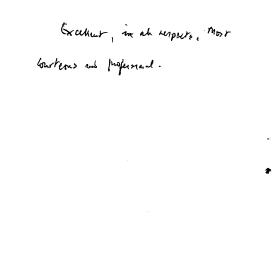 Excellent, in all respects. Most
courteous and professional.